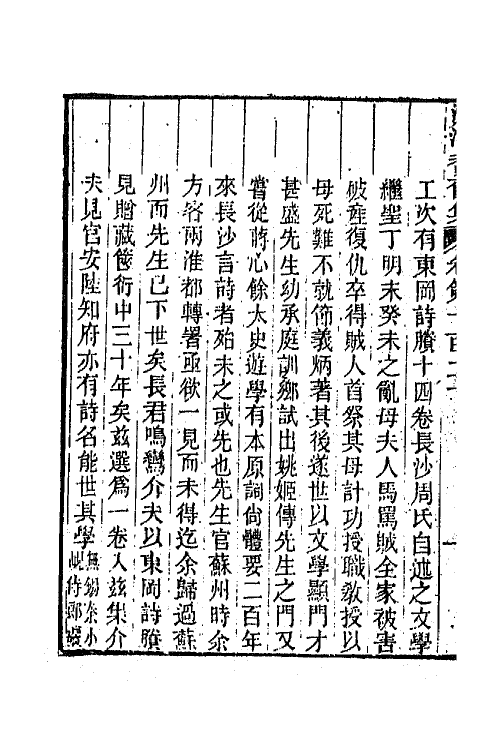 工次有東岡詩賸十四卷長沙周氏自述之文學
繼聖丁明末癸未之亂母夫人馬罵賊全家被害
破產復仇卒得賊人首祭其母計功授職敎授以
母死難不就節義炳著其後遂世以文學顯門才
甚盛先生幼承庭訓鄉試出姚姬傳先生之門又
嘗從蔣心餘太史遊學有本原詞尙體要二百年
來長沙言詩者殆未之或先也先生官蘇州時余
方客兩淮都轉署亟欲一見而未得迄余歸過蘇
州而先生已下世矣長君鳴鸞介夫以東岡詩賸
見贈藏篋衍中三十年矣茲選爲一卷入茲集介
夫見官安陸知府亦有詩名能世其學